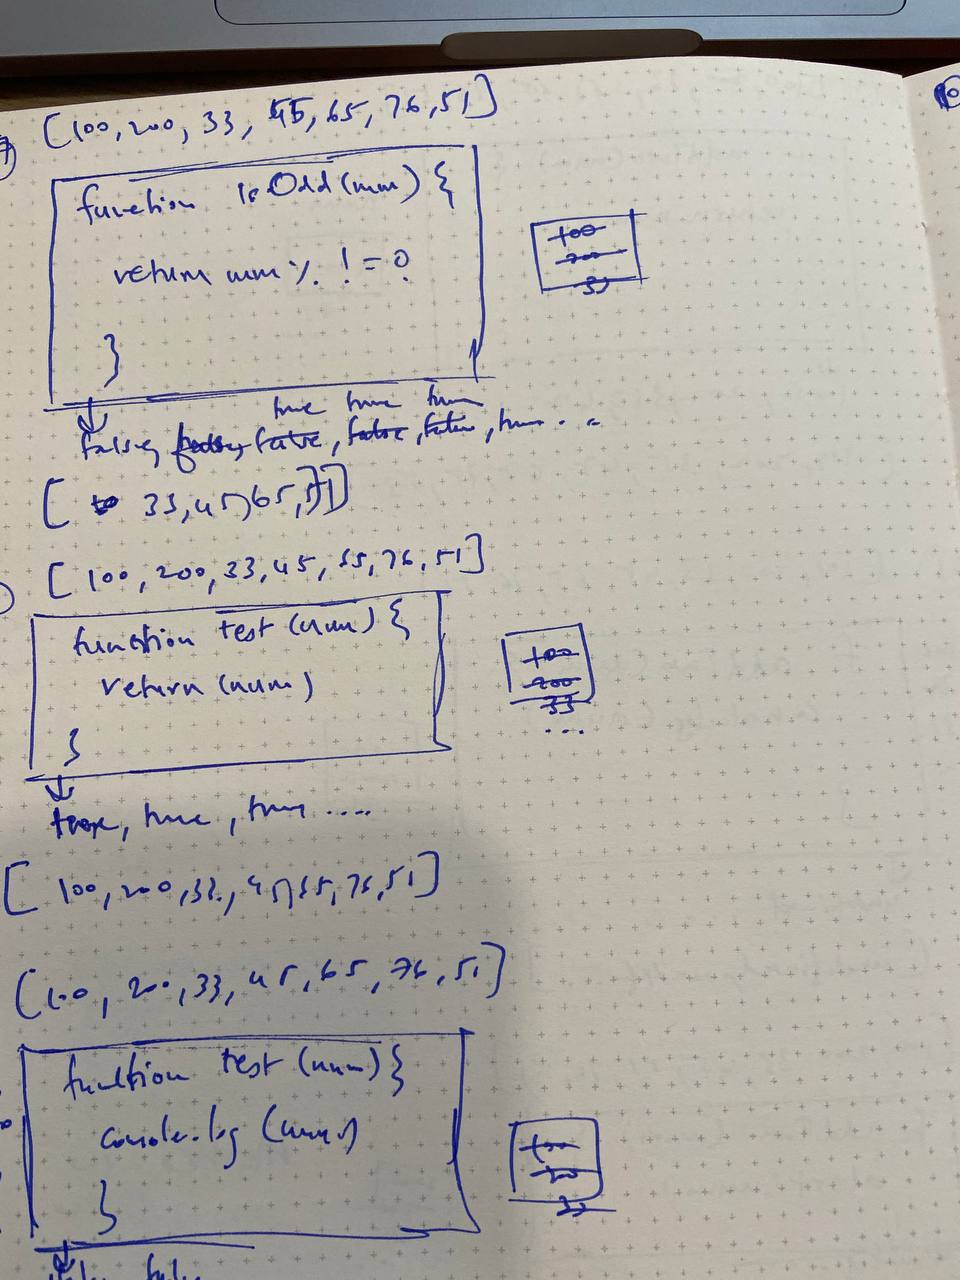 [100, 200, 33, 45, 65, 76, 51]
function isOdd (num) {
return num % ! = 0
100
200
33
}
true true true
false, false, false, false, false, true...
[ 33, 45, 65, 51]
[100, 200, 33, 45, 55, 76, 51]
function test (num) {
return (num)
100
200
33
...
}
true, true, true ....
[100, 200, 33, 45, 55, 76, 51]
[100, 200, 33, 45, 65, 76, 51]
function test (num) {
console.log (num)
100
200
33
}